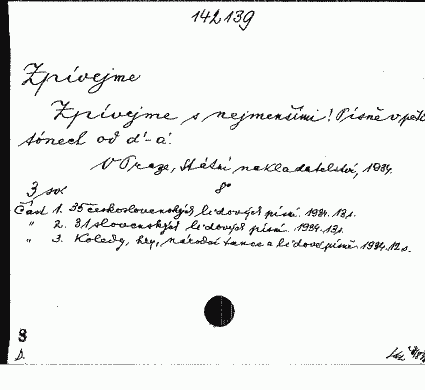 142139
Zpívejme
Zpívejme s nejmenšími! Písně v pěti
tónech od d'-á.
V Praze, Státní nakladatelství, 1934.
3 sv. 8°
Část 1. 35 československých lidových písní. 1934. 13 s.
" 2. 31 slovenských lidových písní. 1934. 13 s.
" 3. Koledy, hry, národní tance a lidové písně. 1934. 12 s.
8
D.